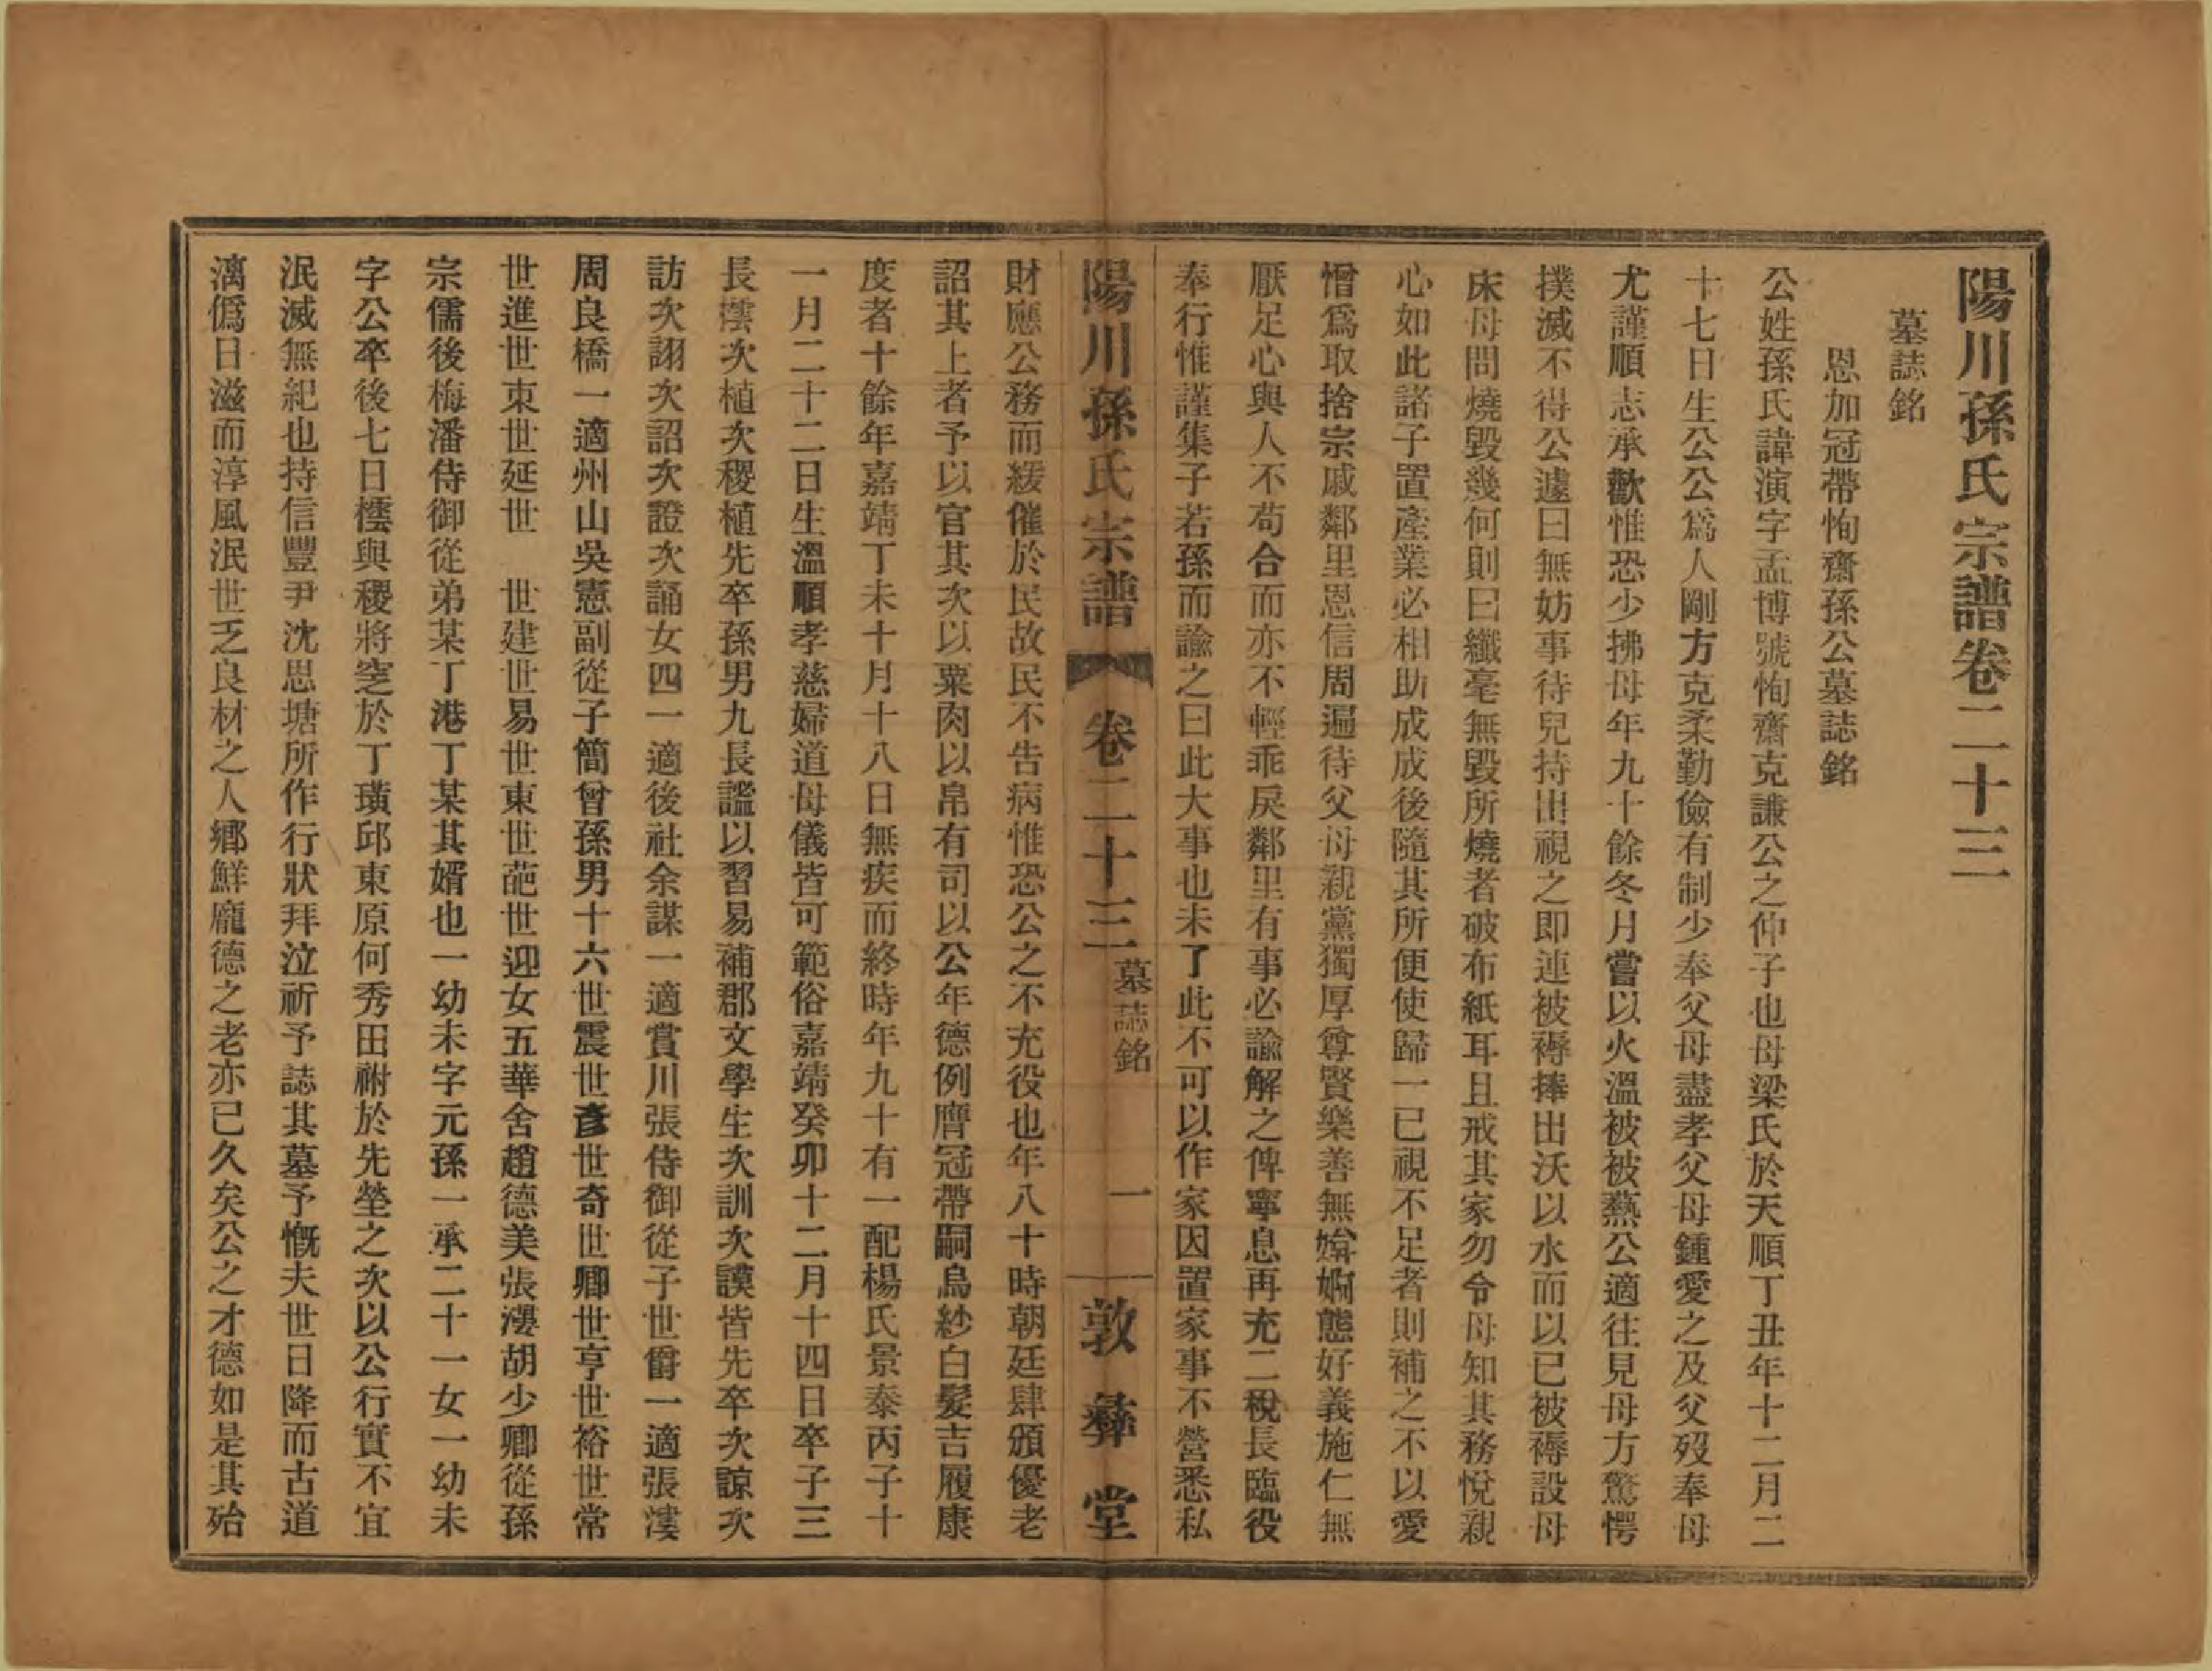 陽川孫氏宗譜卷二十三
墓誌銘
恩加冠帶恂齋孫公墓誌銘
公姓孫氏諱演字孟博號恂齋克謙公之仲子也母梁氏於天順丁丑年十二月二
十七日生公公爲人剛方克柔勤儉有制少奉父母盡孝父母鍾愛之及父歿奉母
尤謹順志承歡惟恐少拂母年九十餘冬月嘗以火溫被被爇公適往見母方驚愕
撲滅不得公遽曰無妨事待兒持出視之即連被褥捧出沃以水而以已被褥設母
床母問燒毀幾何則曰纖毫無毀所燒者破布紙耳且戒其家勿令母知其務悅親
心如此諸子置產業必相助成成後隨其所便使歸一已視不足者則補之不以愛
憎爲取捨宗戚鄰里恩信周遍待父母親黨獨厚尊賢樂善無媕婀態好義施仁無
厭足心與人不苟合而亦不輕乖戾鄰里有事必諭解之俾寧息再充二稅長臨役
奉行惟謹集子若孫而諭之曰此大事也未了此不可以作家因置家事不營悉私
陽川孫氏宗譜 卷二十三 墓誌銘 一 敦彝堂
財應公務而緩催於民故民不告病惟恐公之不充役也年八十時朝廷肆頒優老
詔其上者予以官其次以粟肉以帛有司以公年德例膺冠帶嗣烏紗白髮吉履康
度者十餘年嘉靖丁未十月十八日無疾而終時年九十有一配楊氏景泰丙子十
一月二十二日生溫順孝慈婦道母儀皆可範俗嘉靖癸卯十二月十四日卒子三
長檽次植次稷植先卒孫男九長謐以習易補郡文學生次訓次謨皆先卒次諒次
訪次詡次詔次證次誦女四一適後社余謀一適賞川張侍御從子世爵一適張漊
周良橋一適州山吳憲副從子簡曾孫男十六世震世彥世奇世卿世亨世裕世常
世進世東世延世 世建世易世東世葩世迎女五華舍趙德美張漊胡少卿從孫
宗儒後梅潘侍御從弟某丁港丁某其婿也一幼未字元孫一承二十一女一幼未
字公卒後七日檽與稷將窆於丁璜邱東原何秀田祔於先塋之次以公行實不宜
泯滅無紀也持信豐尹沈思塘所作行狀拜泣祈予誌其墓予慨夫世日降而古道
漓僞日滋而淳風泯世乏良材之人鄉鮮龐德之老亦已久矣公之才德如是其殆